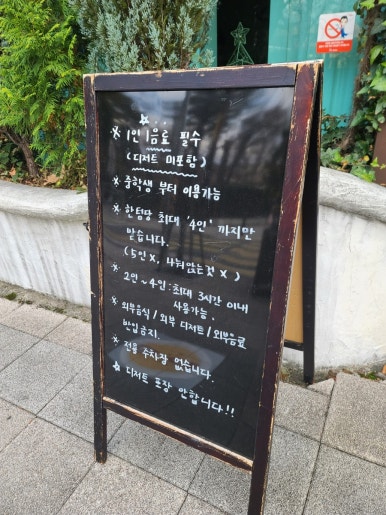 ※ 1인 1음료 필수
(디저트 미포함)
※ 중학생 부터 이용가능
※ 한팀당 최대 '4인' 까지만
받습니다.
(5인 X, 나눠앉는것 X)
※ 2인~4인 : 최대 3시간 이내
사용가능.
※ 외부음식 / 외부 디저트 / 외부음료
반입금지.
※ 전용 주차장 없습니다.
☆ 디저트 포장 안합니다!!